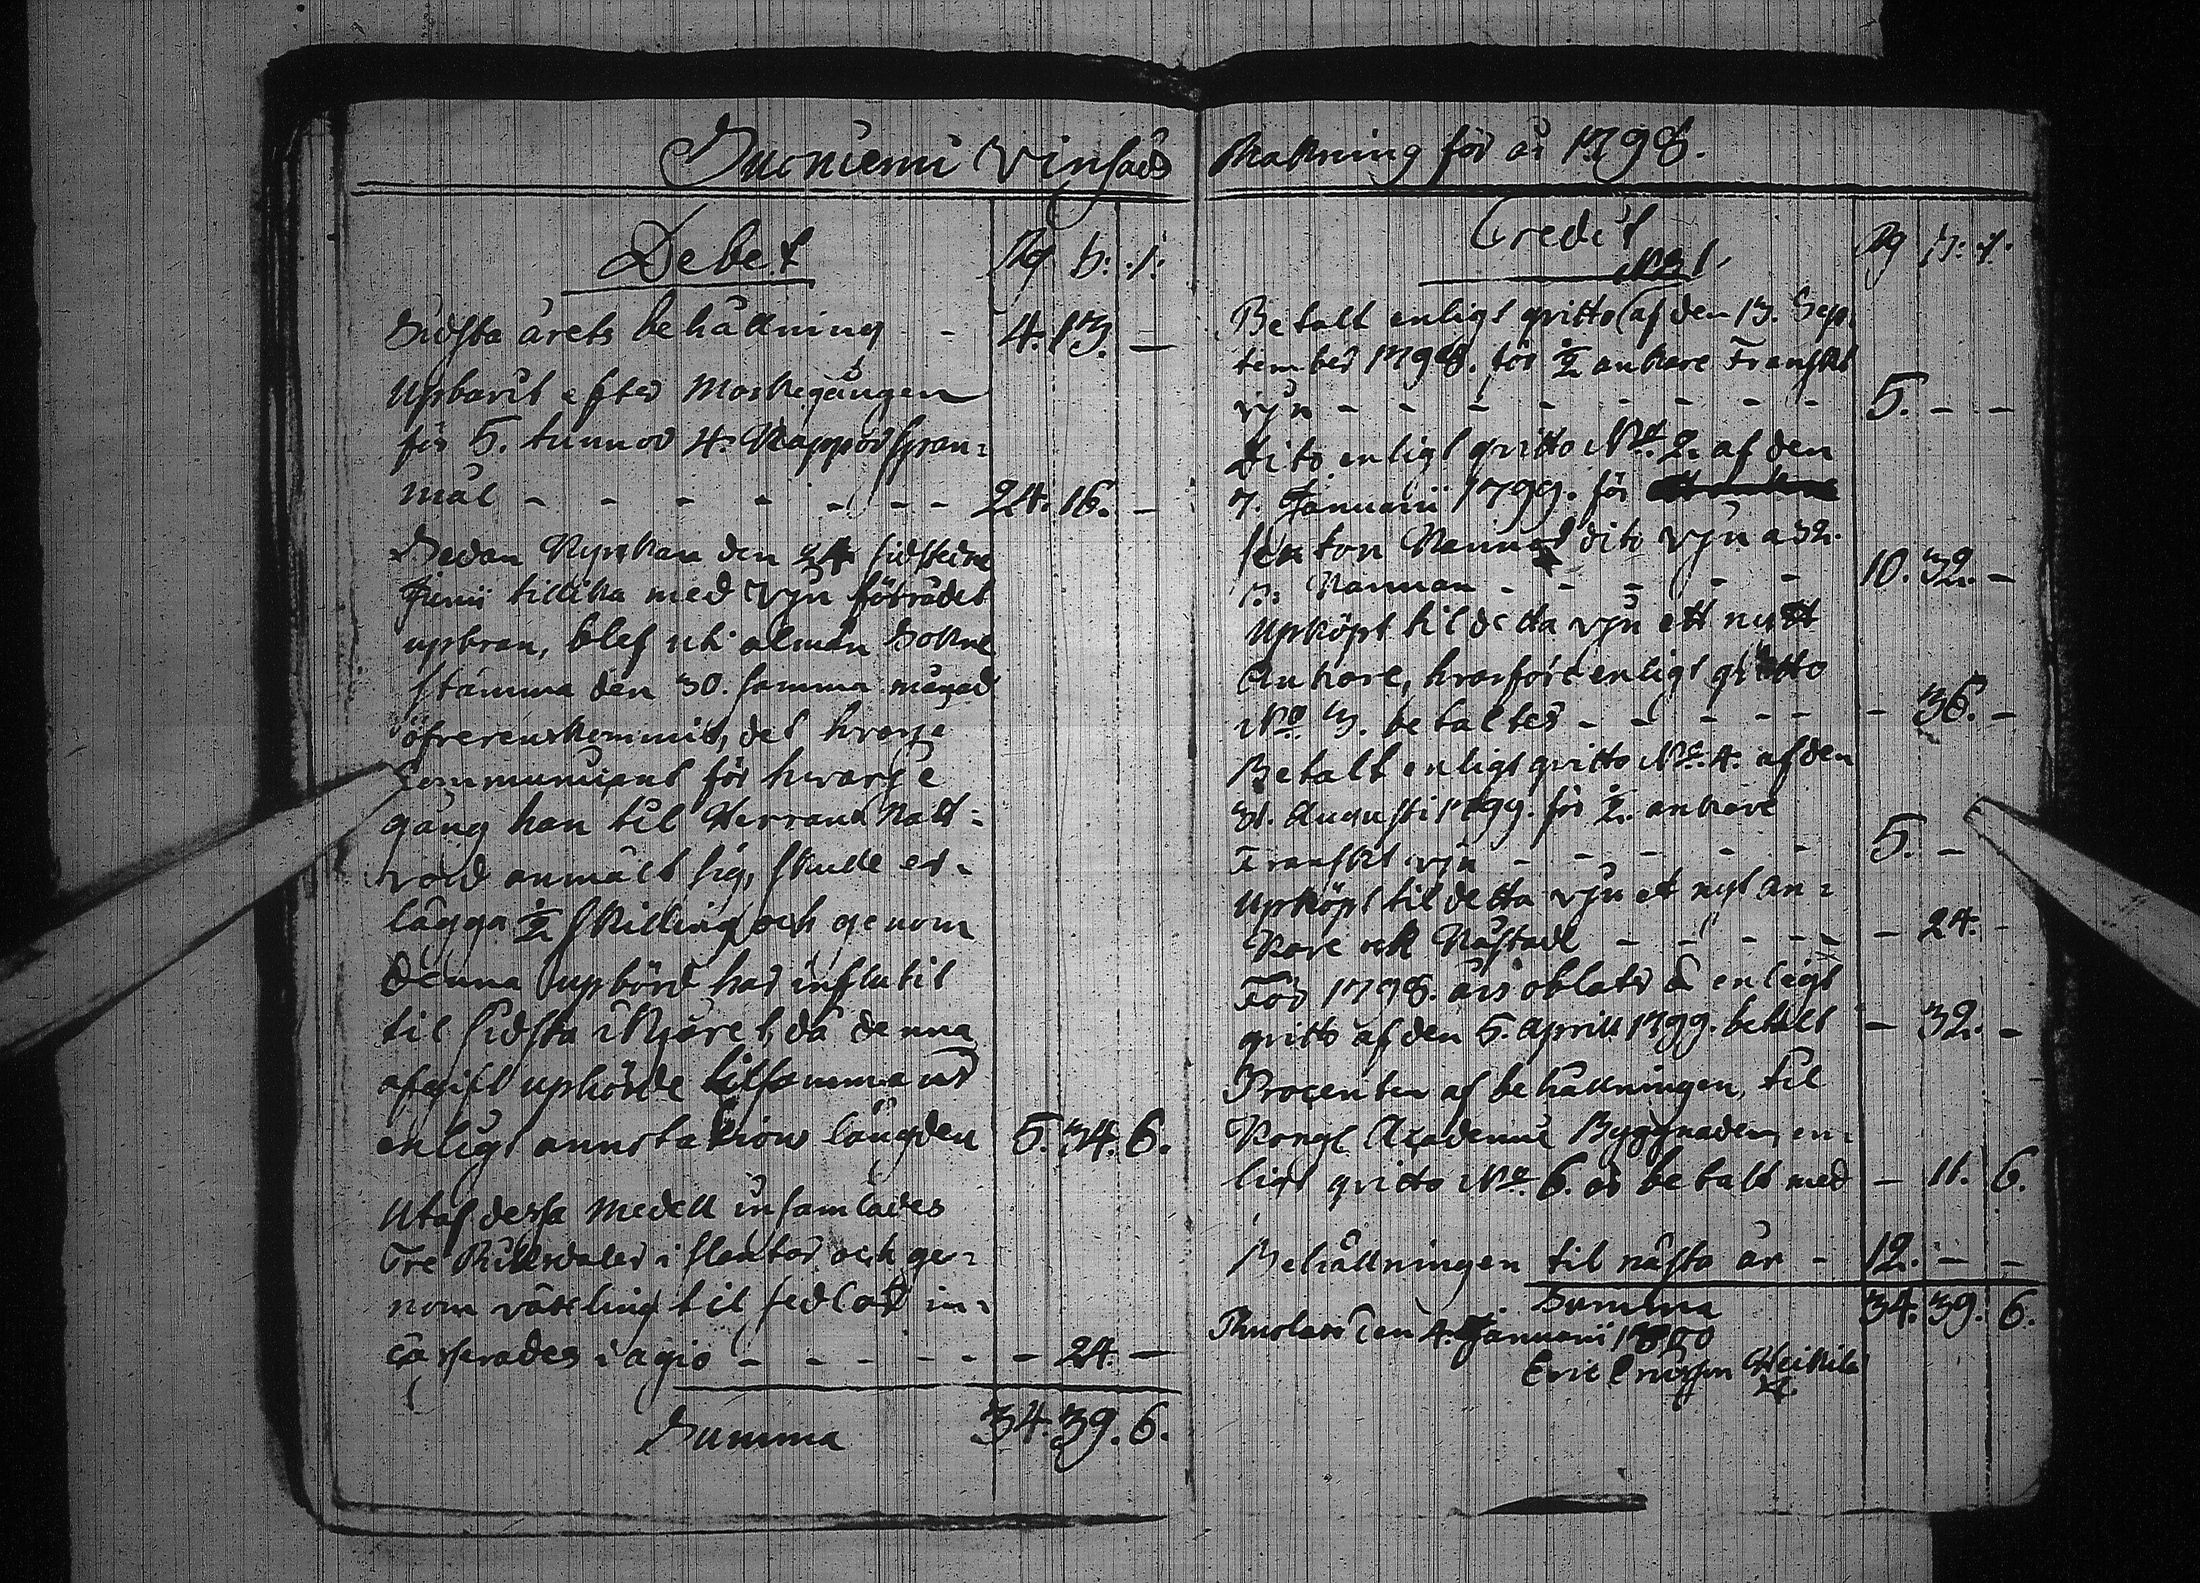 Suoniemi Vinsäds Räkning för år 1798.
Debet Rd ß: .r:
Sidsta årets behållning - - 4. 13. -
Upburit efter Mockegången
för 5. tunnor 4. Kappor span=
mål - - - - - - - 24. 16. -
Sedan Kyrckan den 24 sidstledne
Junii tillika med Vjn förrådet
upbran, blef uti almän Sokne
stämma den 30. samma månad
öfverenskommit, det hvarje
Communicant för hvarje
gång han til Herrans Natt=
vard anmält sig, skulle er-
lägga ½ skilling och genom
denna upbörd har influtit
til sidsta Kjöret, då denna
afgift uphörde tilsammans
enligt annotations längden 5. 34. 6.
Utaf dessa medell insamlades
Tre Riksdaler i slantar och ge=
nom växling til sedlar in=
casserades i agio - - - - - - 24. -
Summa 34. 39. 6.
Credit Rd ß: r:
No 1.
Betalt enligt qvitto af den 13. Sep
tember 1798. för ½ ankare Franskt
vjn - - - - - - - - 5. - -
Dito enligt qvitto No. 2. af den
7. Januarii 1799. för
sexton Kannor dito vjn a 32.
ß: Kannan - - - - - 10. 32. -
Upköpt til detta vjn ett nytt
Ankare, hvarföre enligt qvitto
No. 3. betaltes - - - - - - 36. -
Betalt enligt qvitto No. 4. af den
31. Augusti 1799. för ½. ankare
Franskt vjn - - - - - 5. -
Upköpt til detta vjn et nyt an=
kare och - - - - - - 24. -
För 1798. års oblater enligt
qvitto af den 5. Aprill 1799. betalt - 32. -
Procenten af behållningen til
Kongl Academie Byggnaden en=
ligt qvitto No. 6. är betalt med - 11. 6.
Behållningen til nästa år - 12. - -
Summa 34. 39. 6.
den 4. Januarii 1800
Eric Ericsson Heikilä